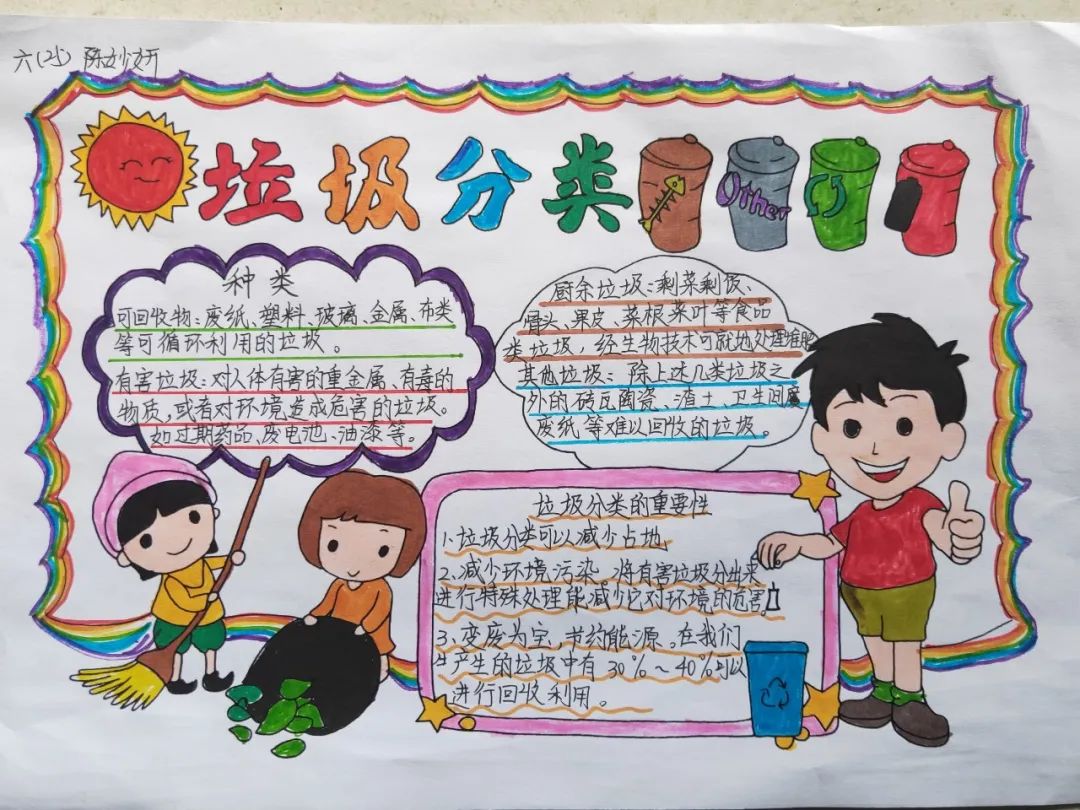 六(2) 陈妙妍
垃圾分类
Other
种类
可回收物:废纸、塑料、玻璃、金属、布类
等可循环利用的垃圾。
有害垃圾:对人体有害的重金属、有毒的
物质,或者对环境造成危害的垃圾。
如过期药品、废电池、油漆等。
厨余垃圾:剩菜剩饭、
骨头、果皮、菜根菜叶等食品
类垃圾,经生物技术可就地处理堆肥
其他垃圾:除上述几类垃圾之
外的砖瓦陶瓷、渣土、卫生间废
废纸等难以回收的垃圾。
垃圾分类的重要性
1、垃圾分类可以减少占地
2、减少环境污染。将有害垃圾分出来
进行特殊处理能减少它对环境的危害。
3、变废为宝,节约能源。在我们
生产生的垃圾中有30%~40%可以
进行回收利用。